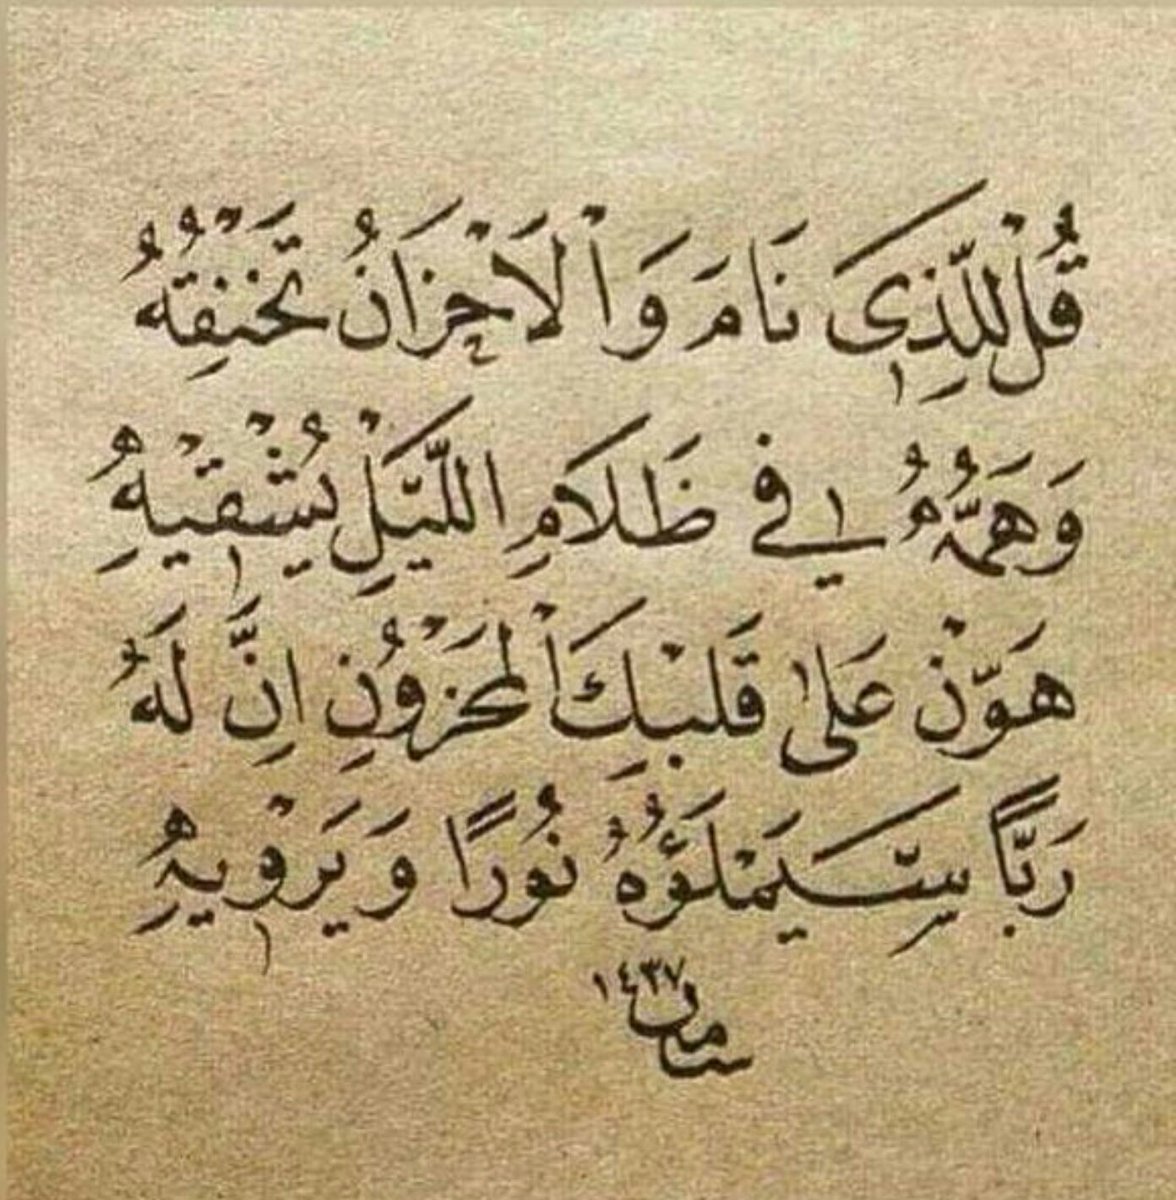 قُلْ لِلَّذِي نَامَ وَالْأَحْزَانُ تَخْنُقُهُ
وَهَمُّهُ فِي ظَلَامِ اللَّيْلِ يُشْقِيْهِ
هَوِّنْ عَلَى قَلْبِكَ الْمَحْزُوْنِ اِنَّ لَهُ
رَبًّا سَيَمْلَؤُهُ نُورًا وَيَرْوِيهِ
١٤٣٧